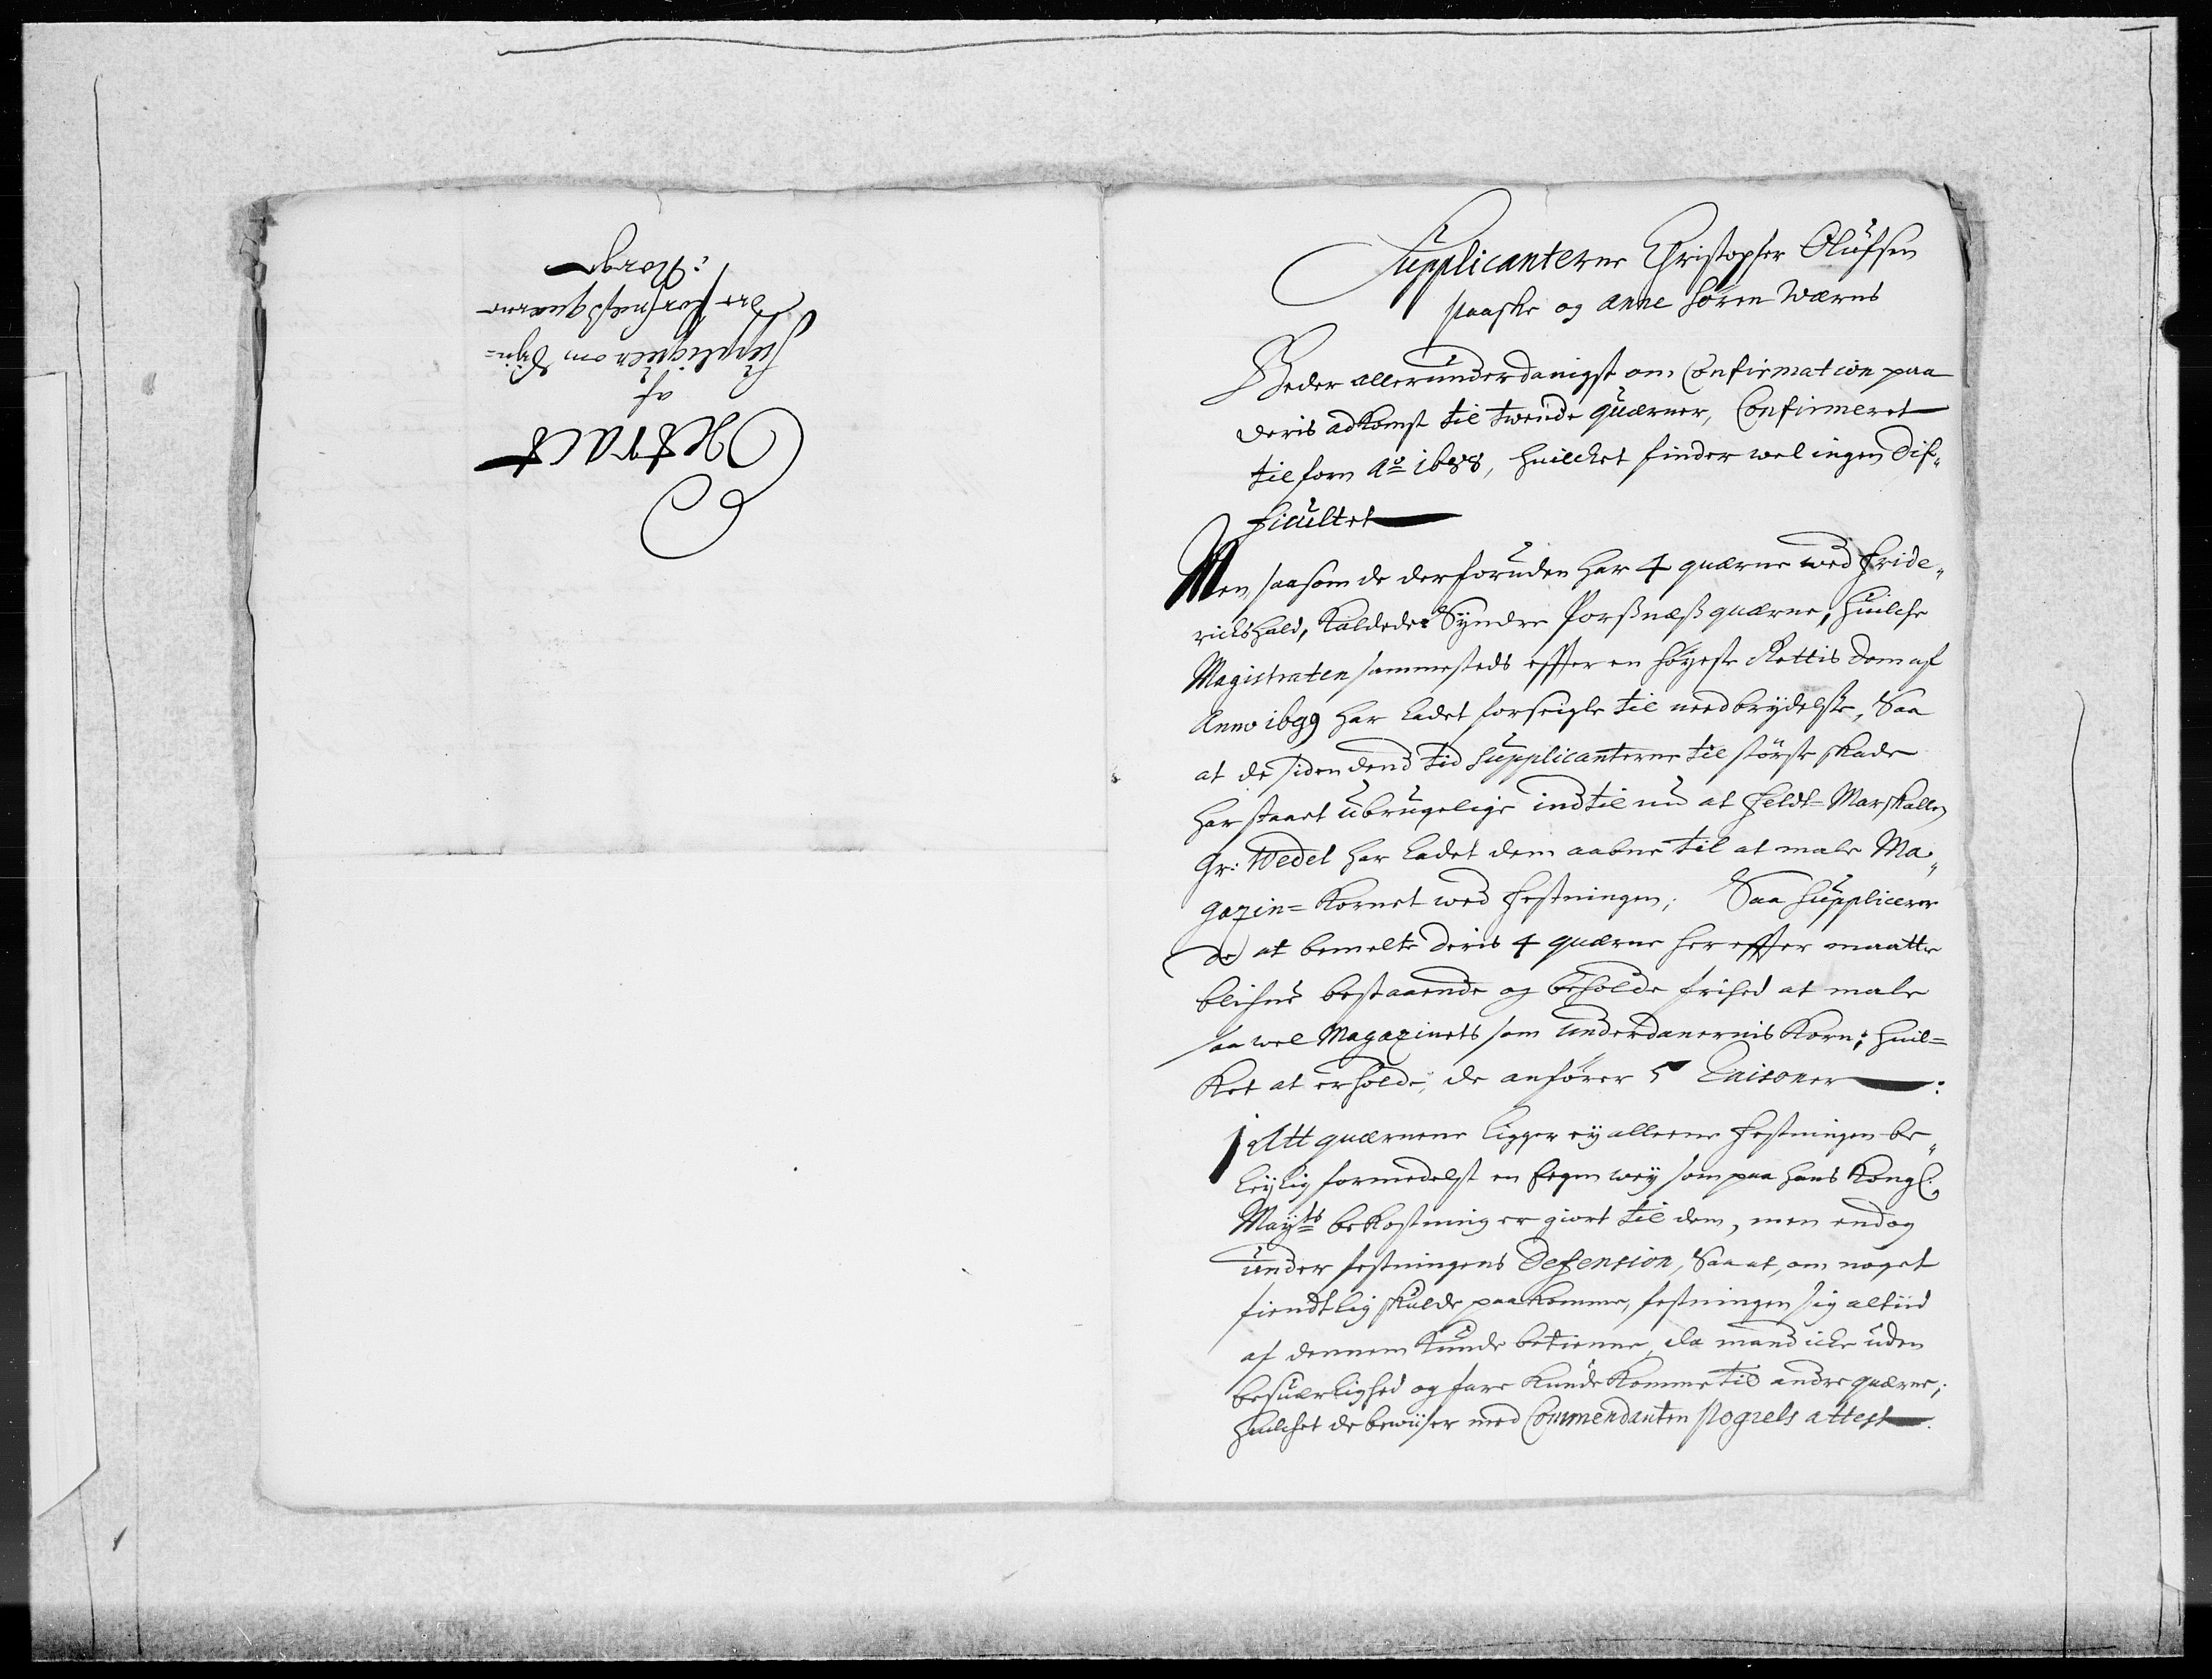 Extract
af
Suppliqver om Syn=
dre Porsnes qværne
i Norge
Supplicanterne Christopher Olufsen
paaske og Anne Sören Wærns
Beder allerunderdanigst om Confirmation paa
deris adkomst til tvende quærner, Confirmeret
tilforn Aō 1688, huilcket finder vel ingen Dif„
ficultet
Men saasom de derforuden har 4 quærne ved Fride„
richshald, kaldede Syndre Porsznæsz quærne, huilche
Magistraten sammesteds effter en höyeste Rettis dom af
Anno 1699 har ladet forseigle til needbrydelse, Saa
at de siden dend tid Supplicanterne til störste skade
har staaet ubrugelige indtil nu at Feldt=Marskallen
Gr: Wedel har ladet dem aabne til at male Ma„
gazin=Kornet ved Festningen; Saa Supplicerer
de at bemelte deris 4 quærne her effter maatte
blifve bestaaende og beholde frihed at male
saa vel Magazinets som Underdanernis Korn; huil=
ket at erholde, de anförer 5 Raisoner:
1 Att quærnene ligger ey alleene Festningen be„
leylig formedelst en Egen vey som paa Hans Kongl.
Mayts bekostning er giort til dem, men endog
under festningens Defension, Saa at, om noget
fiendtlig skulde paakomme, festningen sig altiid
af dennem kunde betienne, da mand icke uden
besuærlighed og fare kunde komme til andre quærne;
huilchet de beviiser med Commendanten Pogrels attest.